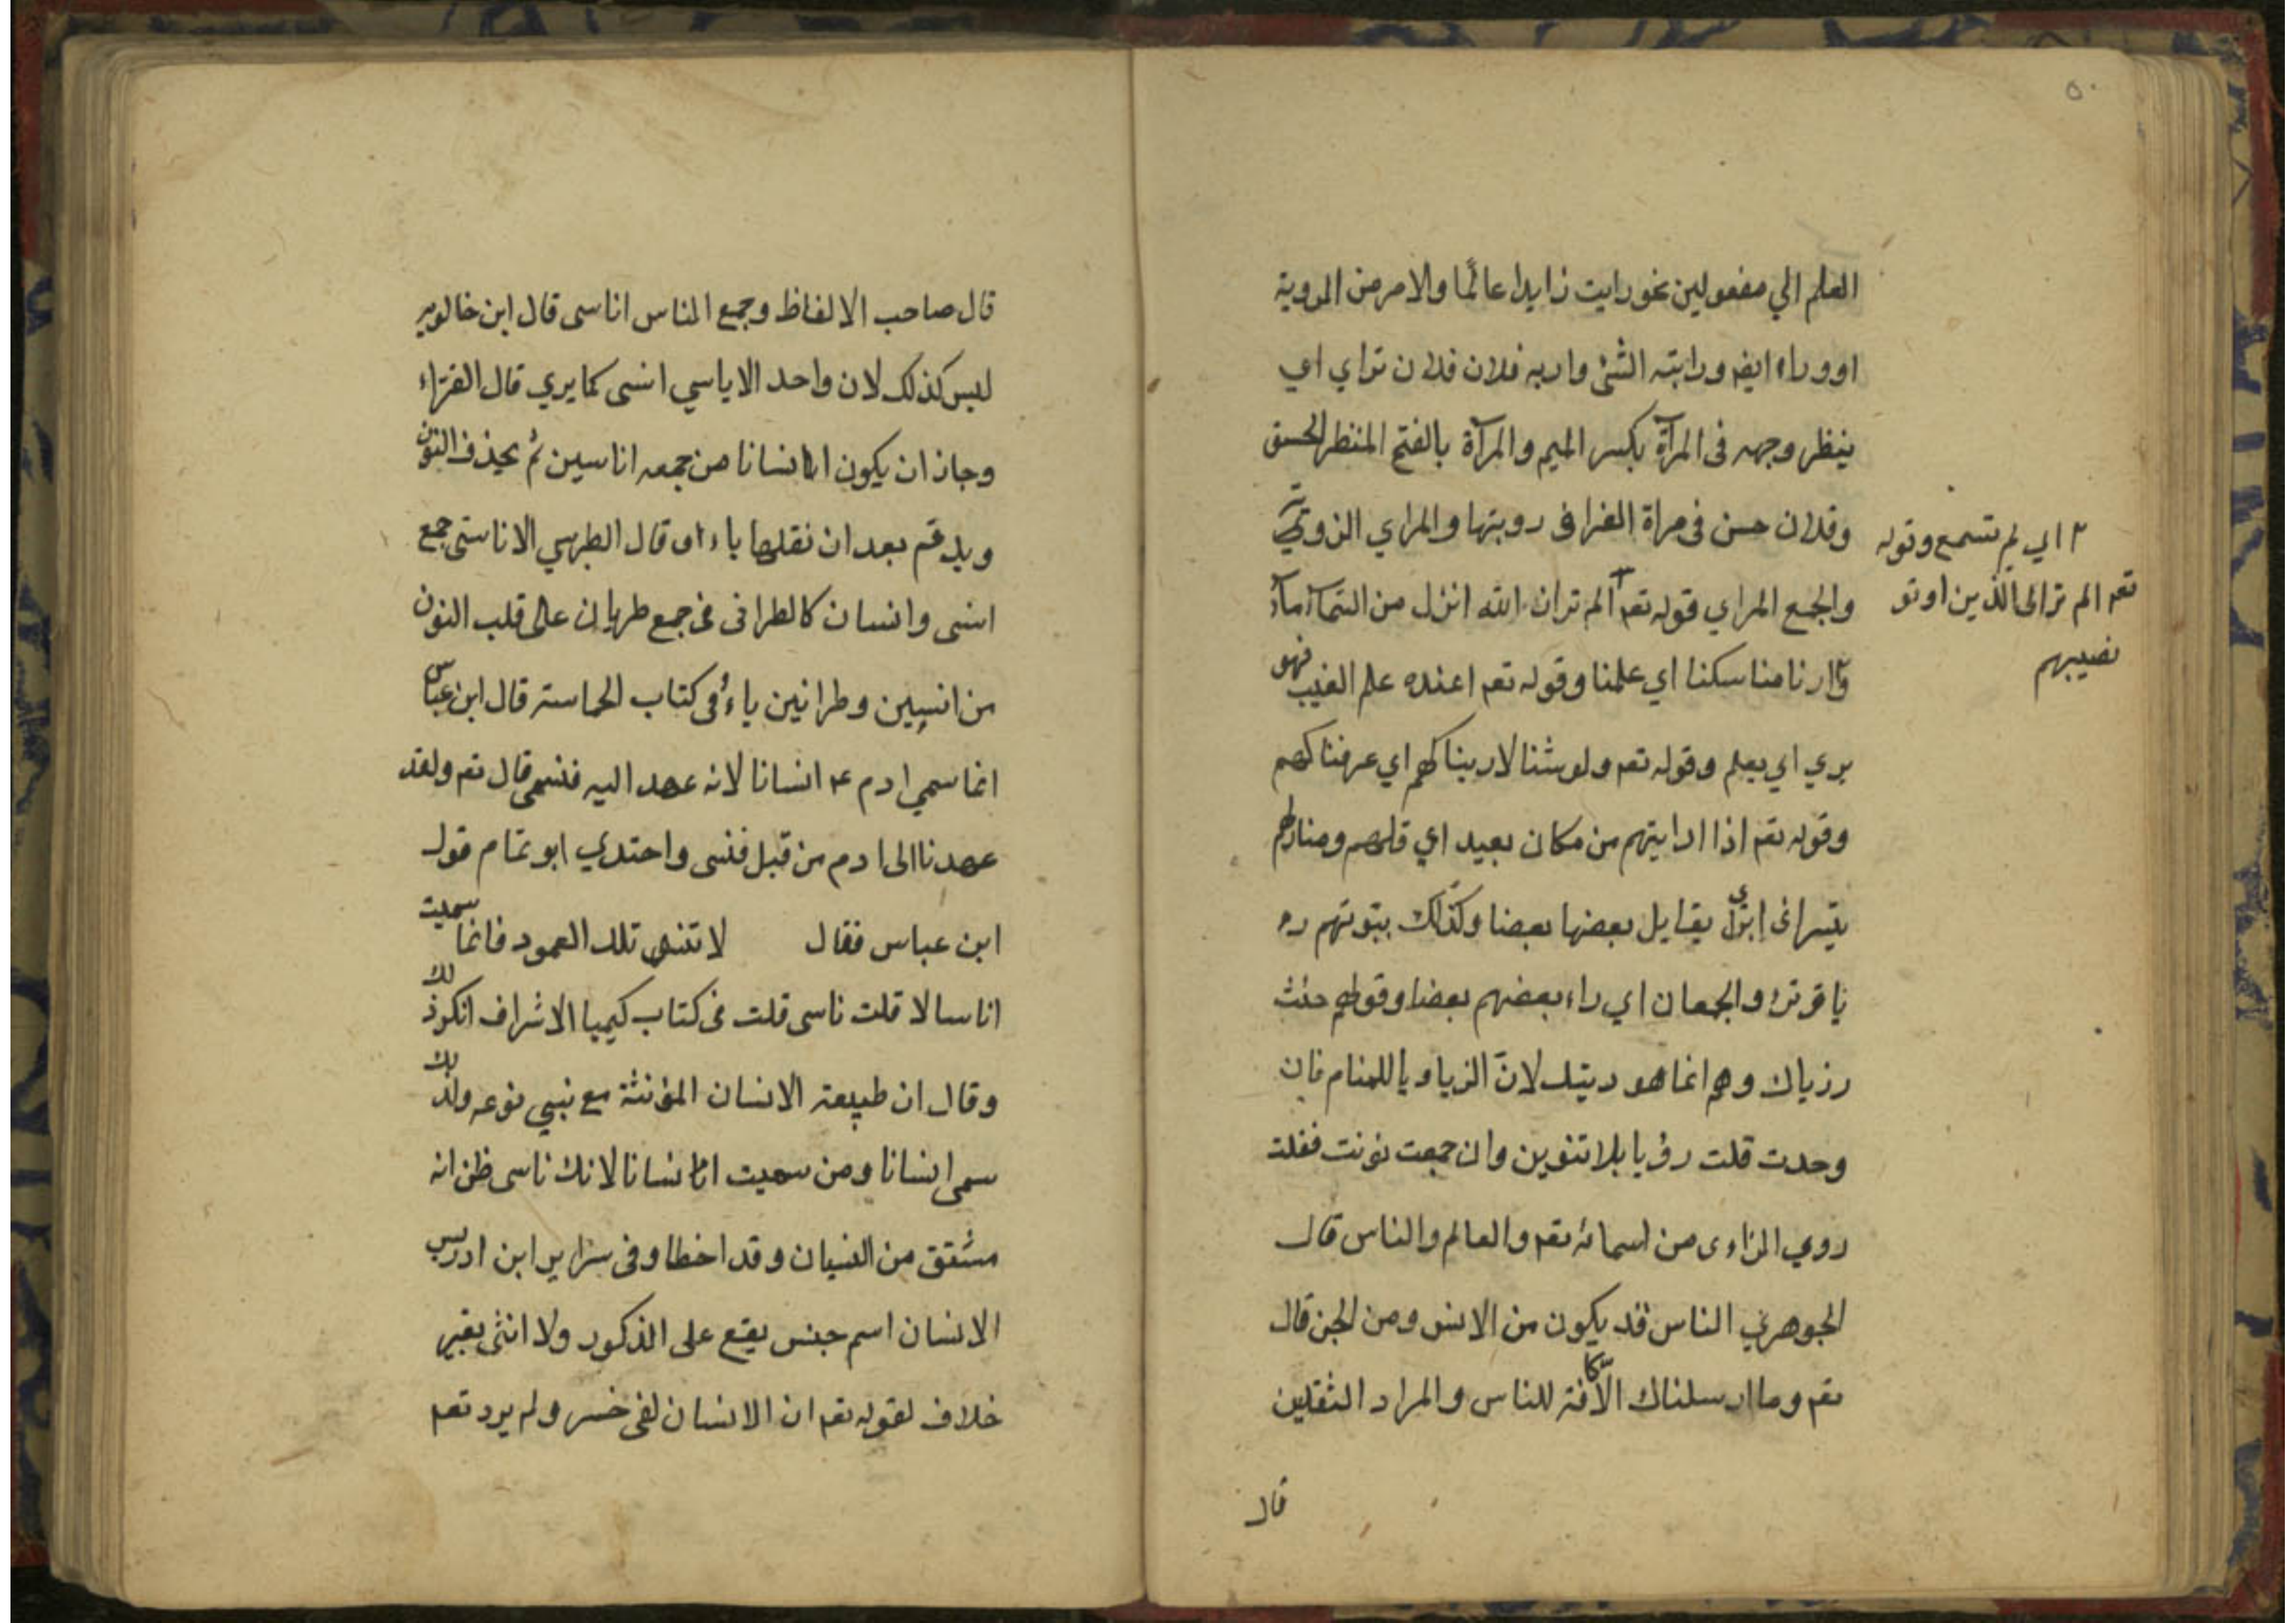 ٥٠
العلم الي مفعولين نحو رايت زايدا عالمًا والامر من الروية
اووراء ايضا ورايته الشئ واريه فلان فلان تراي اي
ينظر وجهه فى المرآة بكسر الميم والمرآة بالفتح المنظر الحسن
وفلان حسن فى مراة الغرا فى رويتها والمراي
والجمع المراي قوله تعم الم تر ان الله انزل من السمآء مآء
٢ اي لم تسمع وقوله
تعم الم تر الى الذين اوتو
نصيبهم
وارنا مناسكنا اي علمنا وقوله تعم اعنده علم الغيب فهو
يري اي يعلم وقوله تعم ولو شئنا لاريناكهم اي عرفناكهم
وقوله تعم اذا ارايتهم من مكان بعيد اي
يقايل بعضها بعضا وكذلك بيوتهم
والجمعان اي راء بعضهم بعضا وقولهم
رزياك وهم انما هو لان الزياويا للمنام فان
وحدت قلت رؤيا بلا تنوين وان جمعت نونت فقلت
روي الراءى من اسمائه تعم والعالم والناس قال
الجوهري الناس قد يكون من الانس ومن الجن قال
تعم وما ارسلناك الّا كافة للناس والمراد الثقلين
قال
قال صاحب الالفاظ وجمع الناس اناسى قال ابن خالويه
ليس كذلك لان واحد الاياسي انسى كما يري قال الفرّاء
وجاز ان يكون انسانا من جمعه اناسين ثم يحذف النون
ويدغم بعد ان نقلها ياء اه قال الطبرسي الاناسى جمع
انسى وانسان كالطرانى فى جمع طربان على قلب النون
من انسين وطرانين ياءً وفى كتاب الحماسة قال ابن عباس
انما سمي ادم ع انسانا لانه عهد اليه فنسى قال تعم ولقد
عهدنا الى ادم من قبل فنسى واحتدي ابو تمام قول
ابن عباس فقال لا تنسى تلك العهود فانما سميت
اناسا لا قلت ناسى قلت فى كتاب كيميا الاشراف انكر ذلك
وقال ان طبيعة الانسان المؤنثة مع نبي نوعه ولذلك
سمى انسانا ومن سميت انسانا لانك ناسى ظن انه
مشتقق من النسيان وقد اخطا وفى سزاير ابن ادريس
الانسان اسم جنس يقع على الذكور ولا انثى بغير
خلاف لقوله تعم ان الانسان لفى خسر ولم يرد تعم